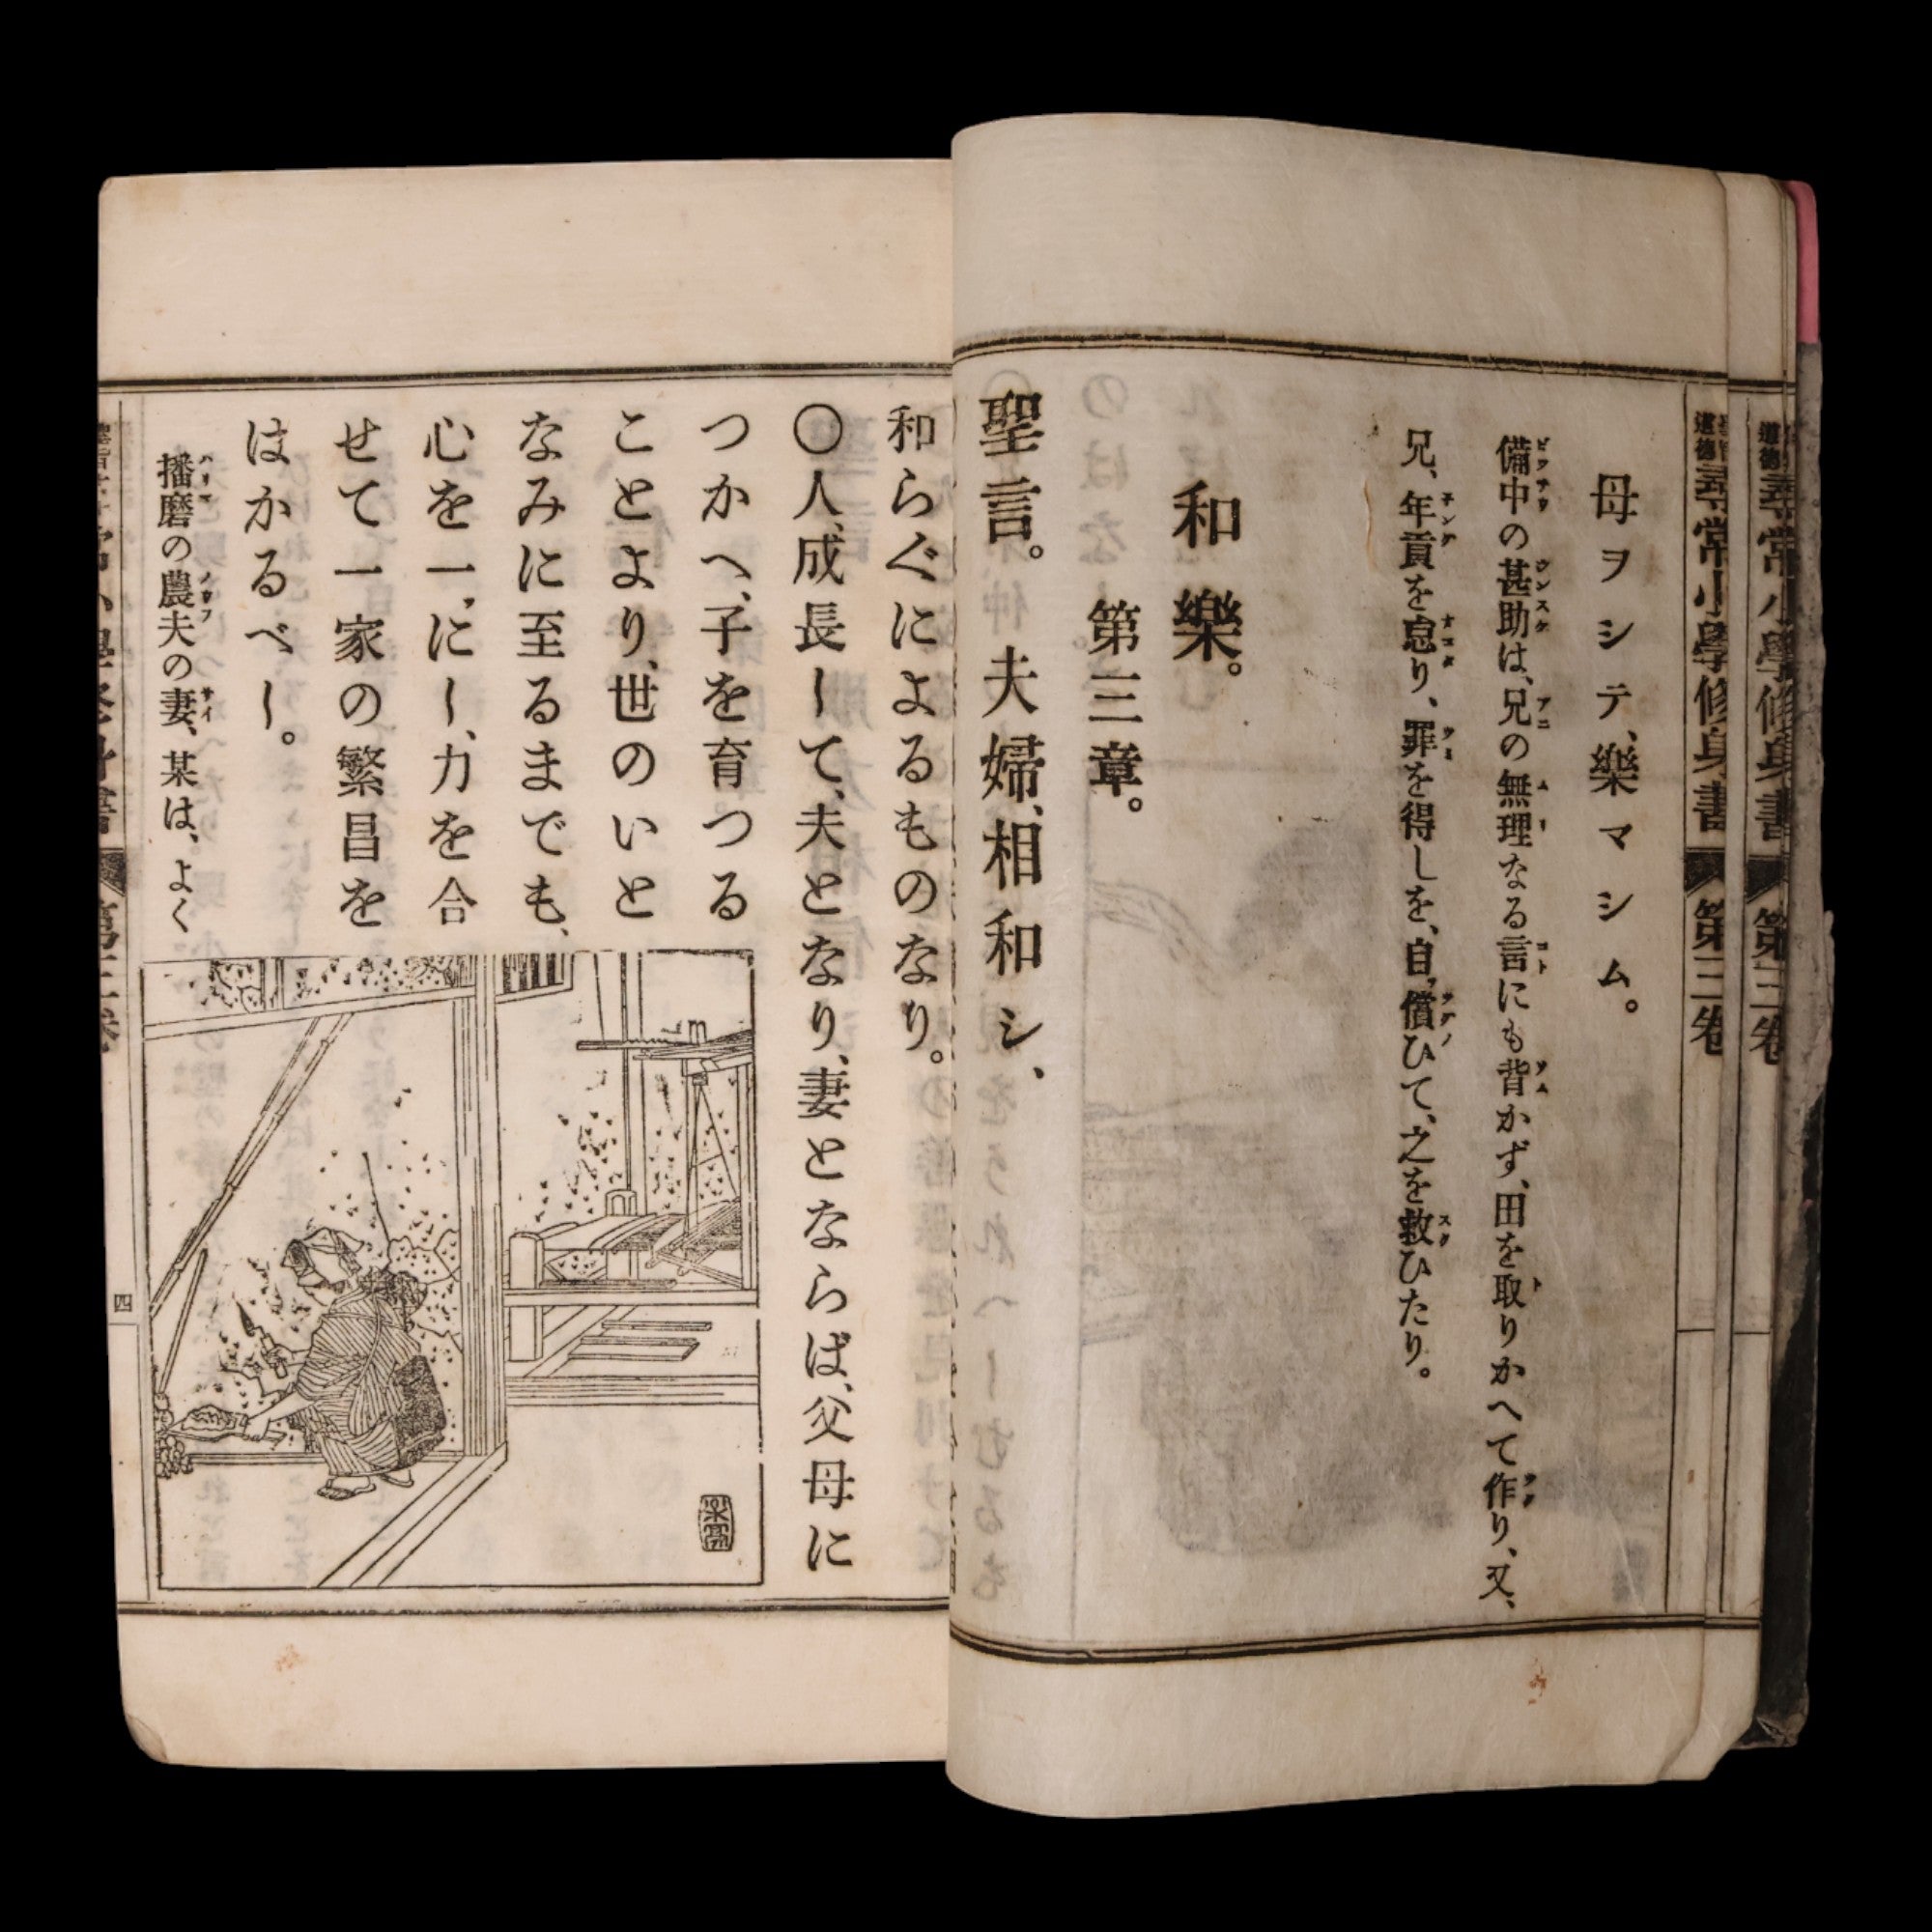 尋常小學修身書 第三卷
尋常小學修身書 第三卷
母ヲシテ、樂マシム。
備中の甚助は、兄の無理なる言にも背かず、田を取りかへて作り、又、
兄、年貢を怠り、罪を得しを、自、償ひて、之を救ひたり。
和樂。
第三章。
聖言。 夫婦、相和シ、
和らぐによるものなり。
〇人、成長して、夫となり、妻とならば、父母に
つかへ、子を育つる
ことより、世のいと
なみに至るまでも、
心を一にし、力を合
せて一家の繁昌を
はかるべし。
播磨の農夫の妻、某は、よく
四